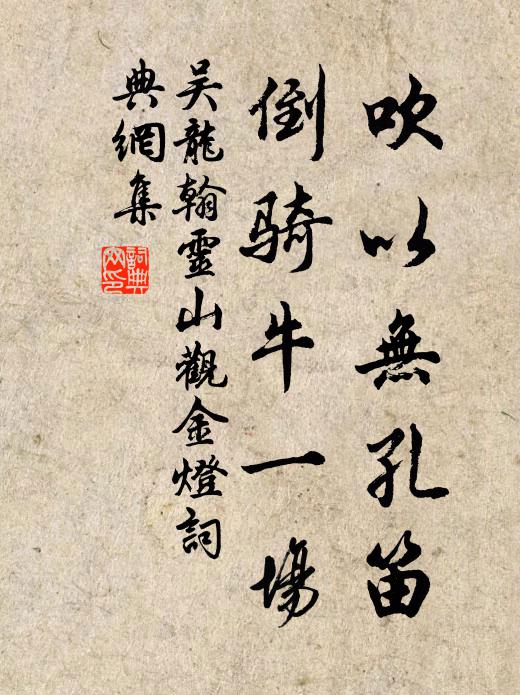 吹以無孔笛
倒騎牛一場
吴龍翰靈山觀金燈詞
典網集
詞典
网印